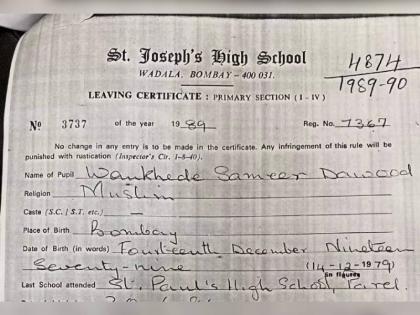 St. Joseph's High School
WADALA, BOMBAY – 400 031.
4874
1989-90
LEAVING CERTIFICATE : PRIMARY SECTION (I - IV)
Nº 3737 of the year 1989 Reg. No. 7367
No change in any entry is to be made in the certificate. Any infringement of this rule will be
punished with rustication (Inspector's Cir. 1-8-40).
Name of Pupil Wankhede Sameer Dawood
Religion Muslim
Caste (S.C. / S.T. etc.) —
Place of Birth Bombay
Date of Birth (in words) Fourteenth December Nineteen
Seventy-nine (14-12-1979)
in figures
Last School attended St. Paul's High School, Parel.